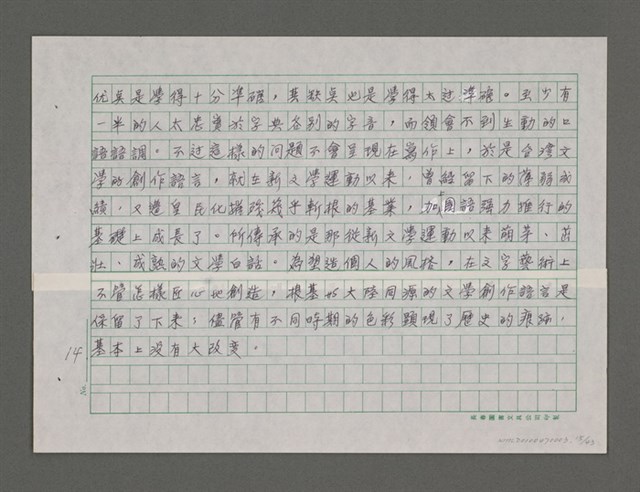 优点是學得十分準確，其缺点也是學得太过準確。至少有
一半的人太忠實於字典各別的字音，而領會不到生動的口
語語調。不过這樣的问題不會呈現在寫作上，於是台灣文
學的創作語言，就在新文學運動以來，曾經留下的薄弱成
績，又遭皇民化摧殘幾乎斬根的基業，加國語強力推行的
基礎上成長了。所傳承的是那從新文學運動以來萌芽、茁
壯、成熟的文學白話。為塑造個人的風格，在文字藝術上
不管怎樣匠心地創造，根基於大陸同源的文學創作語言是
保留了下來；儘管有不同時期的色彩顯現了歷史的痕跡，
基本上沒有大改变。
14
No.